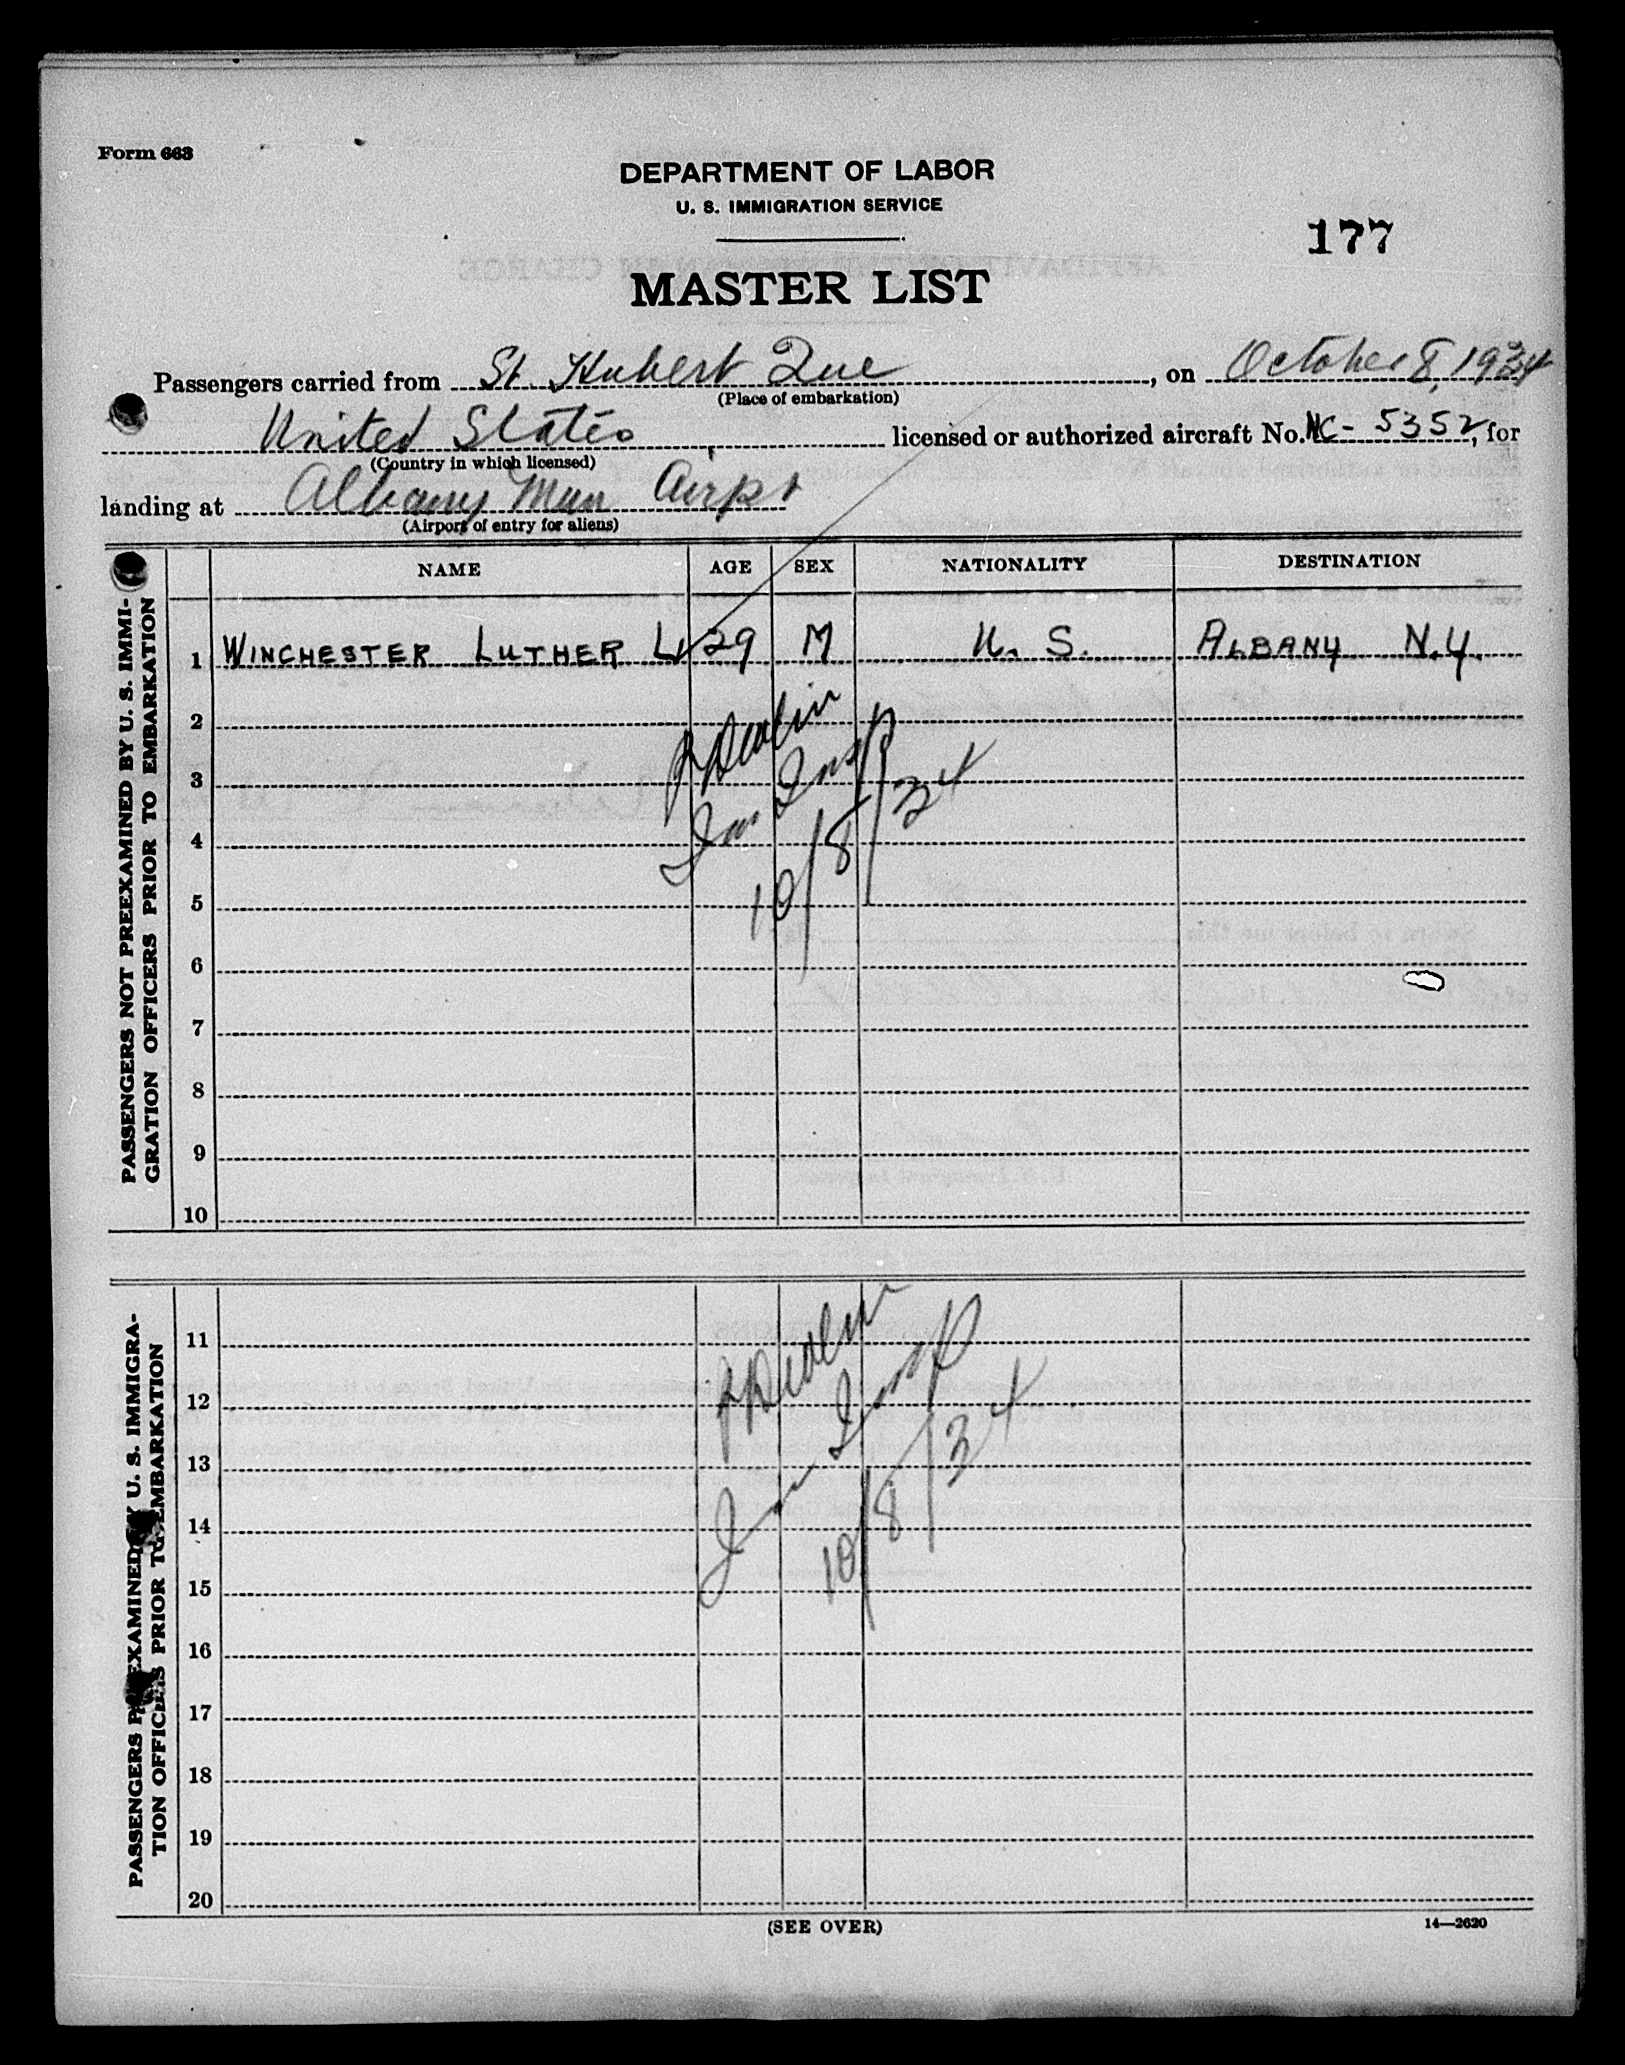 Form 663
DEPARTMENT OF LABOR
U. S. IMMIGRATION SERVICE
177
MASTER LIST
Passengers carried from St. Hubert Que, on October 8, 1934
(Place of embarkation)
United States licensed or authorized aircraft No. NC-5352, for
(Country in which licensed)
landing at Albany Mun Airpt
(Airport of entry for aliens)
NAME AGE SEX NATIONALITY DESTINATION
PASSENGERS NOT PREEXAMINED BY U. S. IMMI-
GRATION OFFICERS PRIOR TO EMBARKATION
1 WINCHESTER LUTHER L 29 M U. S. ALBANY N.Y.
2
3
4
5
6
7
8
9
10
Imm Insp
10/8/34
PASSENGERS PREEXAMINED BY U. S. IMMIGRA-
TION OFFICERS PRIOR TO EMBARKATION
11
12
13
14
15
16
17
18
19
20
Imm Insp
10/8/34
(SEE OVER)
14—2620